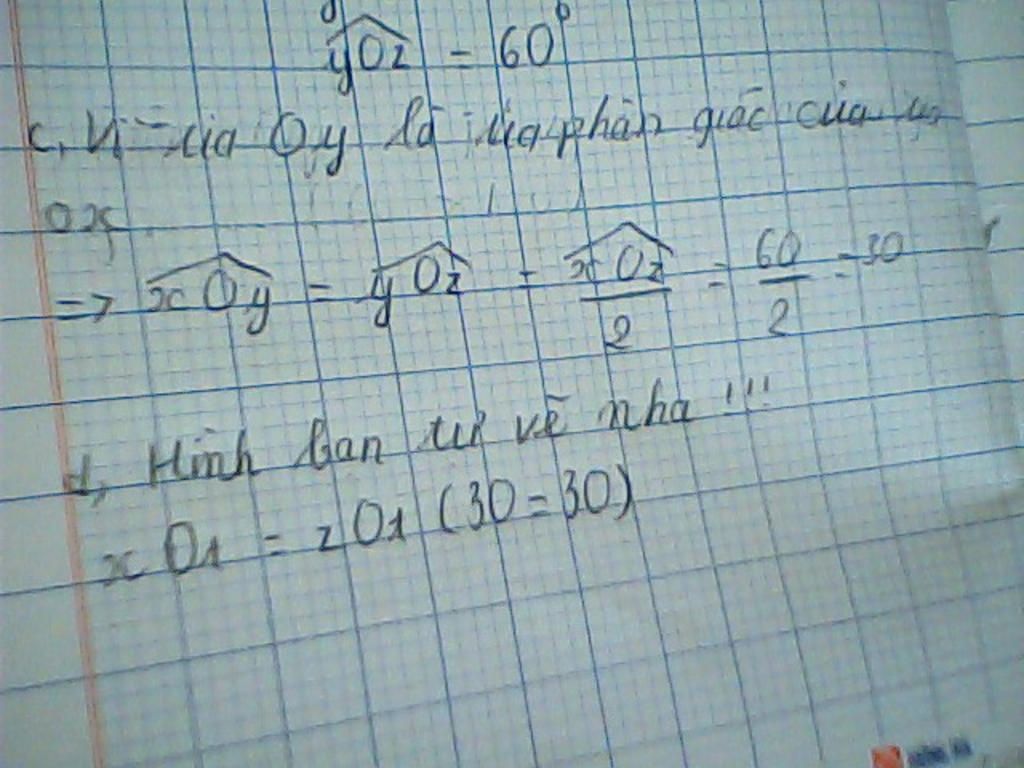 yOz = 60°
c, Vì tia Oy là tia phân giác của
Ox
=> xOy = yOz = xOz/2 = 60/2 = 30
d, Hình bạn tự vẽ nha !!!
xO1 = zO1 (30 = 30)